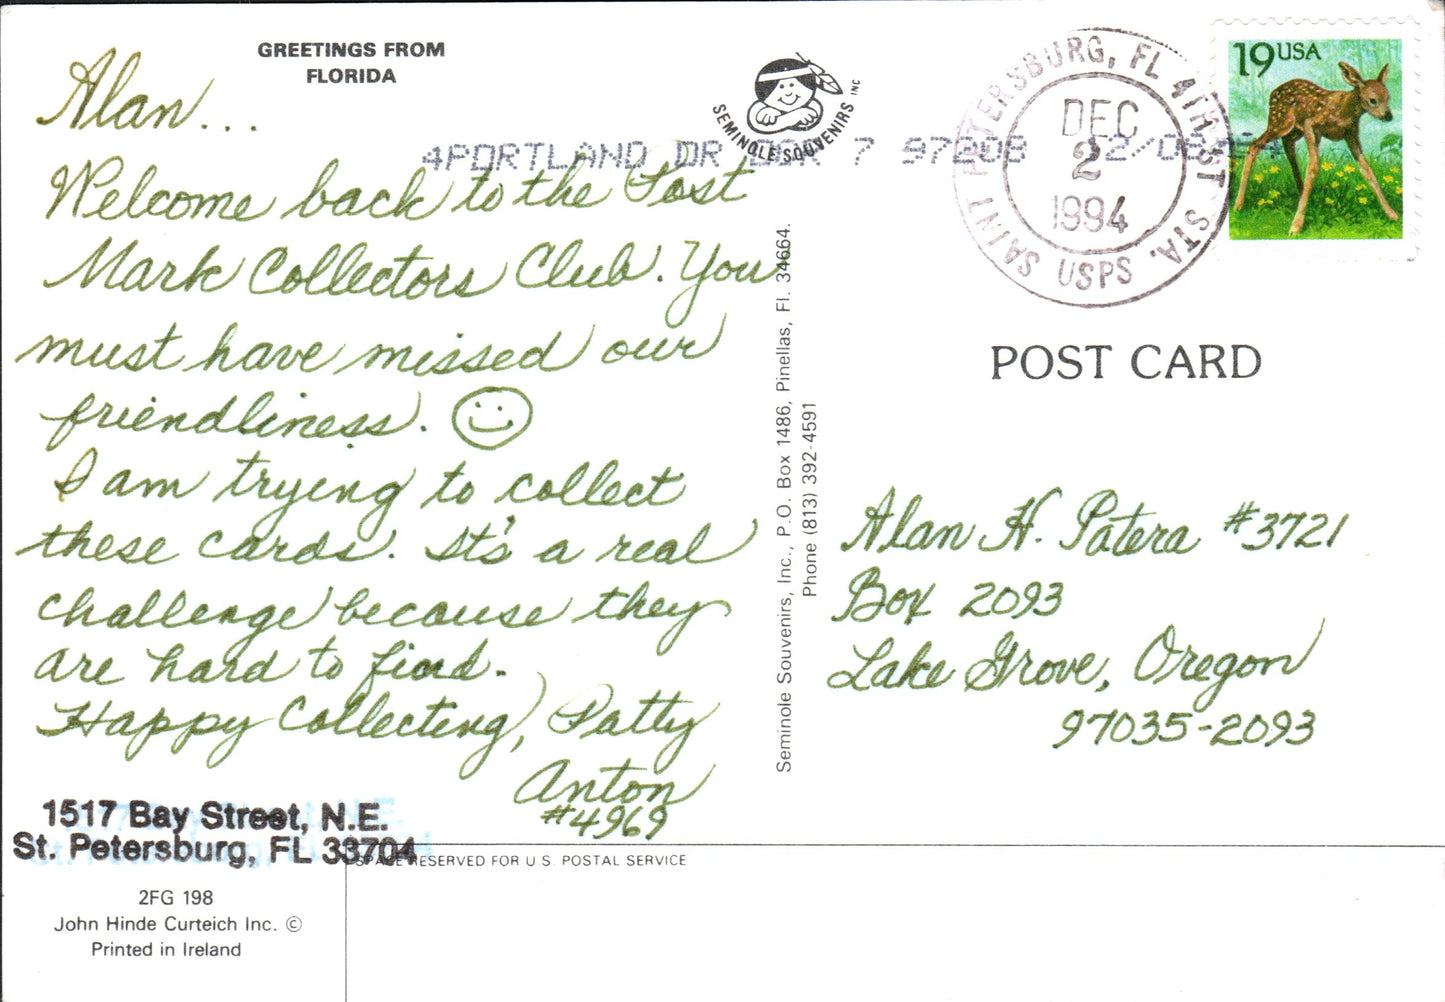 GREETINGS FROM
FLORIDA
Alan...
Welcome back to the Post
Mark Collectors Club. You
must have missed our
friendliness.
I am trying to collect
these cards. It's a real
challenge because they
are hard to find.
Happy Collecting, Patty
Anton
#4969
1517 Bay Street, N.E.
St. Petersburg, FL 33704
SPACE RESERVED FOR U.S. POSTAL SERVICE
2FG 198
John Hinde Curteich Inc. ©
Printed in Ireland
SEMINOLE SOUVENIRS INC
4PORTLAND OR 7 97208
Seminole Souvenirs, Inc., P.O. Box 1486, Pinellas, Fl. 34664.
Phone (813) 392-4591
SAINT PETERSBURG, FL 4TH ST STA.
DEC
2
1994
USPS
19 USA
POST CARD
Alan H. Patera #3721
Box 2093
Lake Grove, Oregon
97035-2093